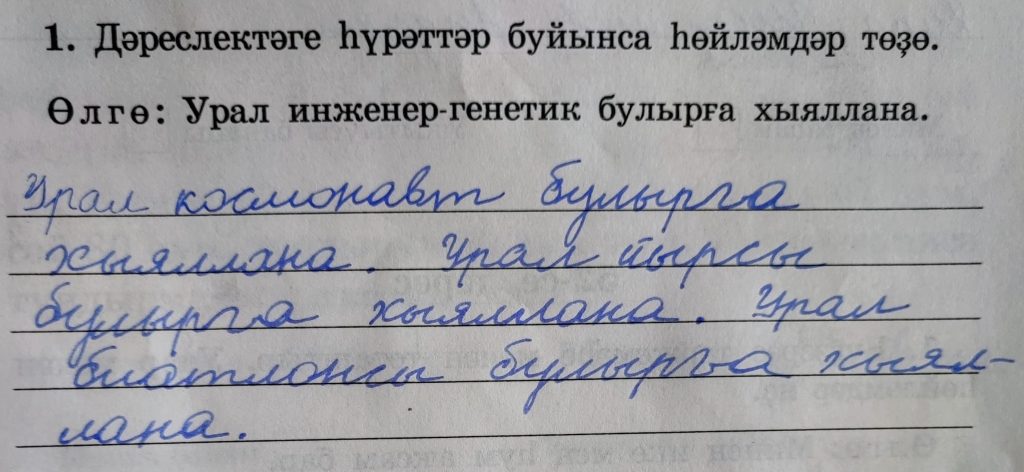 1. Дәреслектәге һүрәттәр буйынса һөйләмдәр төҙө.
Өлгө: Урал инженер-генетик булырға хыяллана.
Урал космонавт булырга
хыяллана. Урал йырсы
булырга хыяллана. Урал
биатлонсы булырға хыял-
лана.